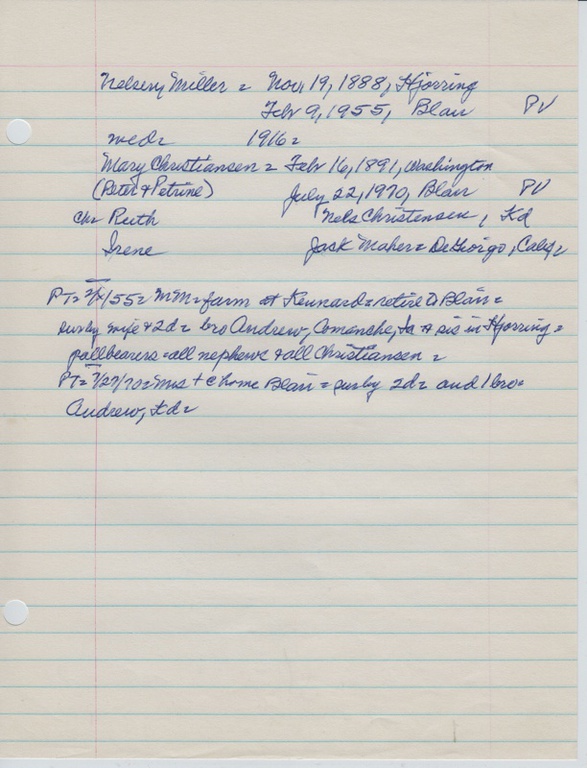 Nelseny Miller = Nov 19, 1888, Hjorring
Feb 9, 1955, Blair PV
wed= 1916=
Mary Christiansen = Feb 16, 1891, Washington
(Peter & Petrine) July 22, 1970, Blair PV
Ch= Ruth Nels Christensen, Kd
Irene Jack Maher = DeGiorgo, Calif=
PT= 55= MM= farm at Kennard= retire to Blair=
surby wife & 2d= bro Andrew, Comanche, Ia & sis in Hjorring=
pallbearers= all nephews & all Christiansen=
PT= 7/27/70= Mrs + C home Blair= surby 2d= and 1 bro=
Andrew, Kd=